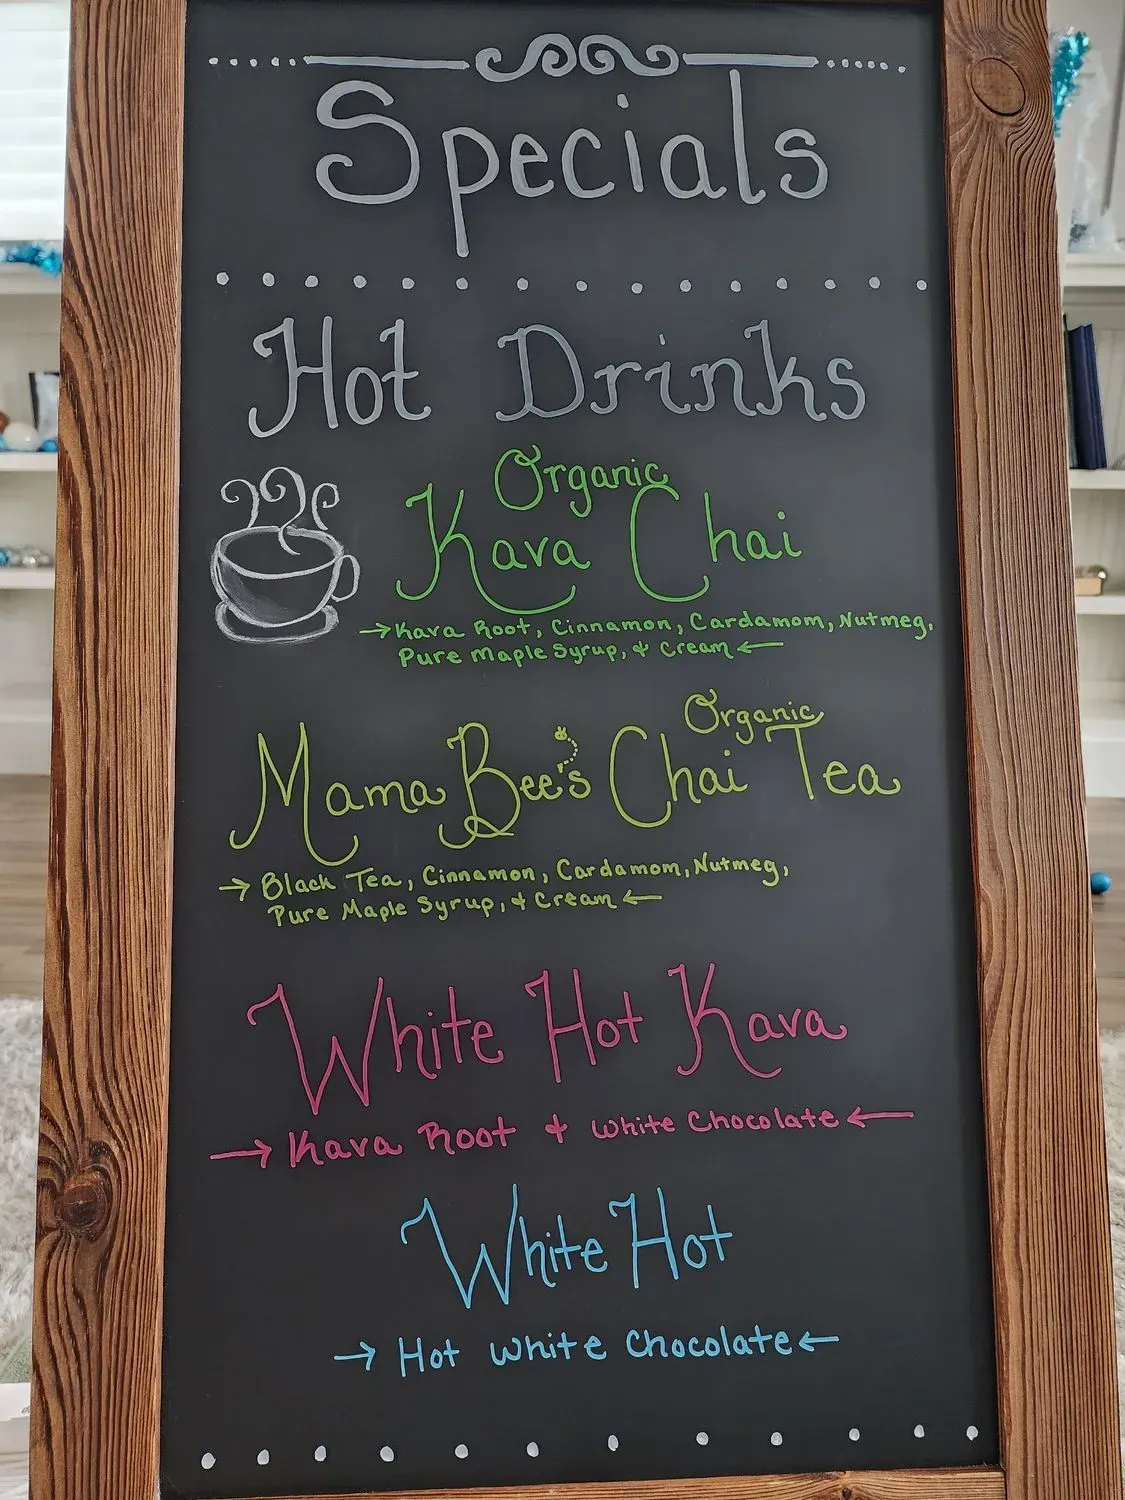 Specials
Hot Drinks
Organic
Kava Chai
→Kava Root, Cinnamon, Cardamom, Nutmeg,
Pure Maple Syrup, & Cream←
Organic
Mama Bee's Chai Tea
→ Black Tea, Cinnamon, Cardamom, Nutmeg,
Pure Maple Syrup, & Cream←
White Hot Kava
→ Kava Root & White Chocolate←
White Hot
→ Hot White Chocolate←